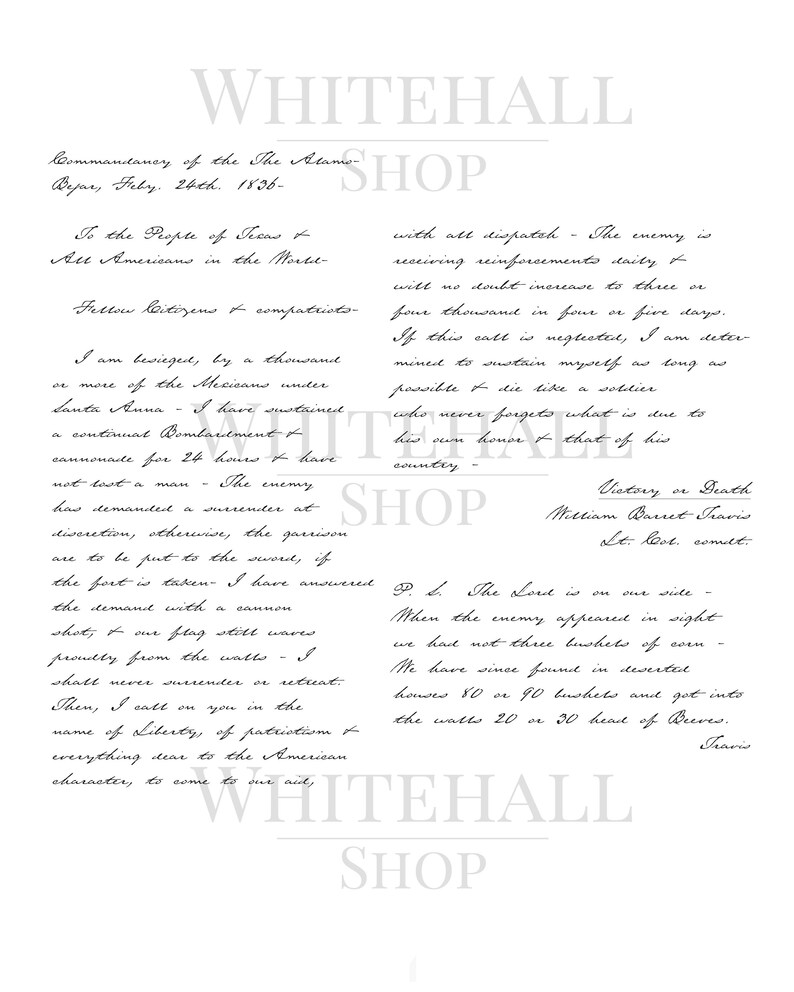 WHITEHALL
SHOP
Commandancy of the The Alamo-
Bejar, Feby. 24th. 1836-
To the People of Texas &
All Americans in the World-
Fellow Citizens & compatriots-
I am besieged, by a thousand
or more of the Mexicans under
Santa Anna - I have sustained
a continual Bombardment &
cannonade for 24 hours & have
not lost a man - The enemy
has demanded a surrender at
discretion, otherwise, the garrison
are to be put to the sword, if
the fort is taken- I have answered
the demand with a cannon
shot, & our flag still waves
proudly from the walls - I
shall never surrender or retreat.
Then, I call on you in the
name of Liberty, of patriotism &
everything dear to the American
character, to come to our aid,
with all dispatch - The enemy is
receiving reinforcements daily &
will no doubt increase to three or
four thousand in four or five days.
If this call is neglected, I am deter-
mined to sustain myself as long as
possible & die like a soldier
who never forgets what is due to
his own honor & that of his
country -
Victory or Death
William Barret Travis
Lt. Col. comdt.
P. S. The Lord is on our side -
When the enemy appeared in sight
we had not three bushels of corn -
We have since found in deserted
houses 80 or 90 bushels and got into
the walls 20 or 30 head of Beeves.
Travis
WHITEHALL
SHOP
WHITEHALL
SHOP